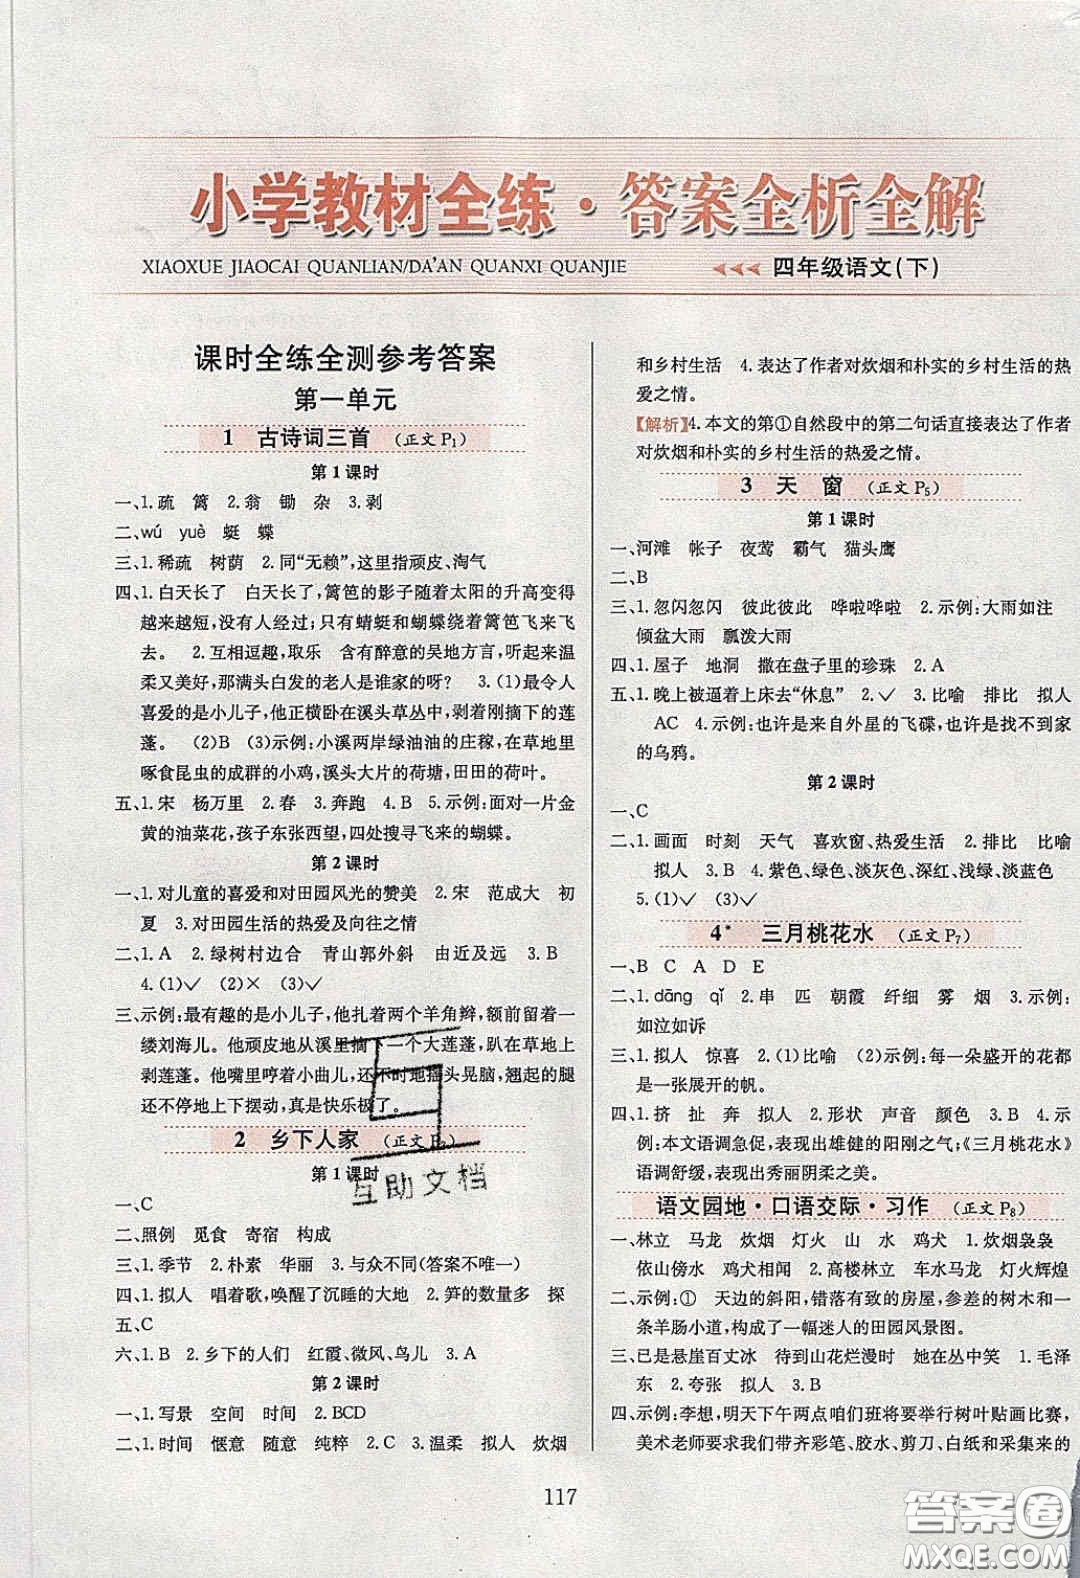 小学教材全练·答案全析全解
XIAOXUE JIAOCAI QUANLIAN/DA'AN QUANXI QUANJIE
四年级语文(下)
课时全练全测参考答案
第一单元
1 古诗词三首 (正文P₁)
第1课时
一、1.疏 篱 2.翁 锄 杂 3.剥
二、wú yuè 蜓 蝶
三、1.稀疏 树荫 2.同“无赖”,这里指顽皮、淘气
四、1.白天长了 白天长了,篱笆的影子随着太阳的升高变得
越来越短,没有人经过;只有蜻蜓和蝴蝶绕着篱笆飞来飞
去。 2.互相逗趣,取乐 含有醉意的吴地方言,听起来温
柔又美好,那满头白发的老人是谁家的呀? 3.(1)最令人
喜爱的是小儿子,他正横卧在溪头草丛中,剥着刚摘下的莲
蓬。 (2)B (3)示例:小溪两岸绿油油的庄稼,在草地里
啄食昆虫的成群的小鸡,溪头大片的荷塘,田田的荷叶。
五、1.宋 杨万里 2.春 3.奔跑 4.B 5.示例:面对一片金
黄的油菜花,孩子东张西望,四处搜寻飞来的蝴蝶。
第2课时
一、1.对儿童的喜爱和对田园风光的赞美 2.宋 范成大 初
夏 3.对田园生活的热爱及向往之情
二、1.A 2.绿树村边合 青山郭外斜 由近及远 3.B
4.(1)✓ (2)× (3)✓
三、示例:最有趣的是小儿子,他扎着两个羊角辫,额前留着一
缕刘海儿。他顽皮地从溪里摘下一个大莲蓬,趴在草地上
剥莲蓬。他嘴里哼着小曲儿,还不时地摇头晃脑,翘起的腿
还不停地上下摆动,真是快乐极了。
2 乡下人家 (正文P₃)
第1课时
一、C
二、照例 觅食 寄宿 构成
三、1.季节 2.朴素 华丽 3.与众不同(答案不唯一)
四、1.拟人 唱着歌,唤醒了沉睡的大地 2.笋的数量多 探
五、C
六、1.B 2.乡下的人们 红霞、微风、鸟儿 3.A
第2课时
一、1.写景 空间 时间 2.BCD
二、1.时间 惬意 随意 纯粹 2.C 3.温柔 拟人 炊烟
和乡村生活 4.表达了作者对炊烟和朴实的乡村生活的热
爱之情。
【解析】4.本文的第①自然段中的第二句话直接表达了作者
对炊烟和朴实的乡村生活的热爱之情。
3 天 窗 (正文P₅)
第1课时
一、河滩 帐子 夜莺 霸气 猫头鹰
二、B
三、1.忽闪忽闪 彼此彼此 哗啦哗啦 2.示例:大雨如注
倾盆大雨 瓢泼大雨
四、1.屋子 地洞 撒在盘子里的珍珠 2.A
五、1.晚上被逼着上床去“休息” 2.✓ 3.比喻 排比 拟人
AC 4.示例:也许是来自外星的飞碟,也许是找不到家
的乌鸦。
第2课时
一、C
二、1.画面 时刻 天气 喜欢窗、热爱生活 2.排比 比喻
拟人 3.B 4.紫色、绿色、淡灰色、深红、浅绿、淡蓝色
5.(1)✓ (3)✓
4* 三月桃花水 (正文P₇)
一、B C A D E
二、1.dāng qǐ 2.串 匹 朝霞 纤细 雾 烟 3.示例:
如泣如诉
三、1.拟人 惊喜 2.(1)比喻 (2)示例:每一朵盛开的花都
是一张展开的帆。
四、1.挤 扯 奔 拟人 2.形状 声音 颜色 3.C 4.示
例:本文语调急促,表现出雄健的阳刚之气;《三月桃花水》
语调舒缓,表现出秀丽阴柔之美。
语文园地·口语交际·习作 (正文P₈)
一、林立 马龙 炊烟 灯火 山 水 鸡犬 1.炊烟袅袅
依山傍水 鸡犬相闻 2.高楼林立 车水马龙 灯火辉煌
二、示例:① 天边的斜阳,错落有致的房屋,参差的树木和一
条羊肠小道,构成了一幅迷人的田园风景图。
三、已是悬崖百丈冰 待到山花烂漫时 她在丛中笑 1.毛泽
东 2.夸张 拟人 3.B
四、示例:李想,明天下午两点咱们班将要举行树叶贴画比赛,
美术老师要求我们带齐彩笔、胶水、剪刀、白纸和采集来的
互助文档
117
答案圈
MXQE.COM